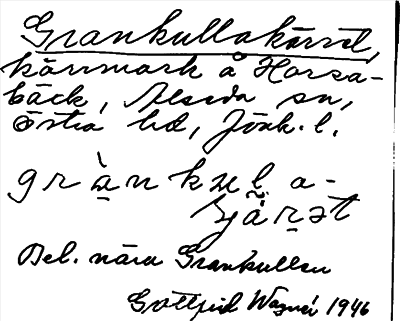 Grankullakärret,
kärrmark å Horsa-
bäck, Alseda sn,
Östra hd, Jönk. l.
grànkul a-
çjärət
Bel. nära Grankullen
Gottfrid Wagnér 1946